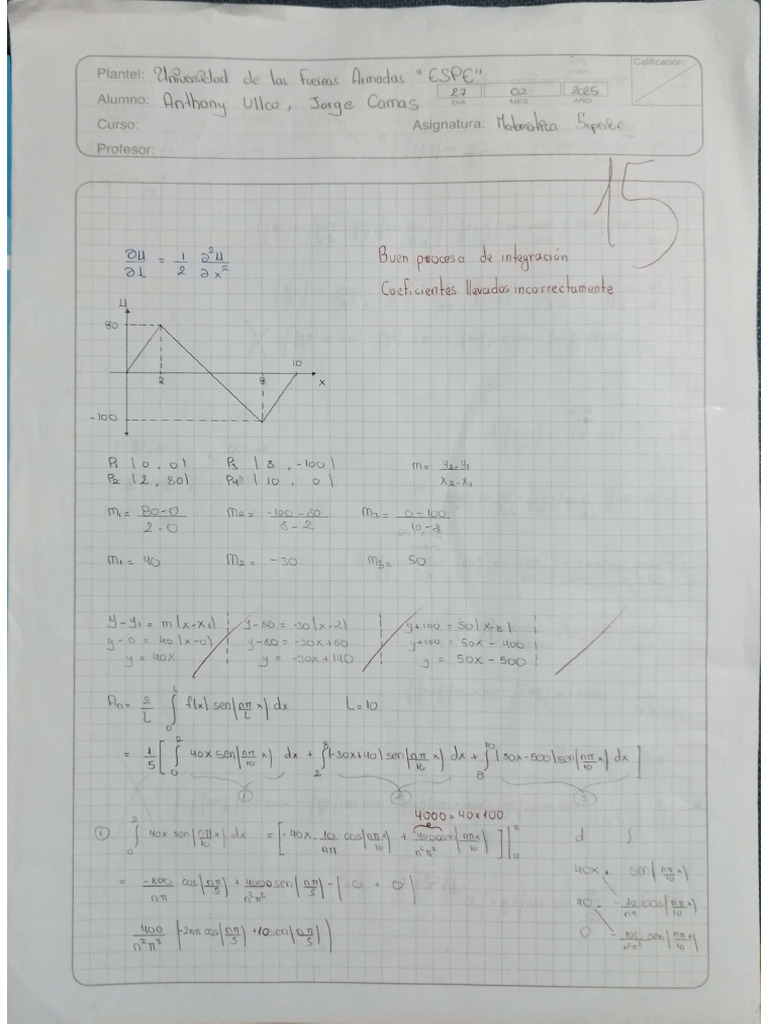 Plantel: Universidad de las Fuerzas Armadas "ESPE"
Calificación:
Alumno: Anthony Ullco, Jorge Camas
27 02 2025
DIA MES AÑO
Curso:
Asignatura: Matemática Superior
Profesor:
15
∂u/∂t = 1/2 ∂²u/∂x²
Buen proceso de integración
Coeficientes llevados incorrectamente
u
80
10
2
8
x
-100
P1 (0, 0) P3 (8, -100) m = y2-y1 / x2-x1
P2 (2, 80) P4 (10, 0)
m1 = 80-0 / 2-0 m2 = -100-80 / 8-2 m3 = 0-100 / 10-8
m1 = 40 m2 = -30 m3 = 50
y-y1 = m(x-x1) y-80 = -30(x-2) y+100 = 50(x-8)
y-0 = 40(x-0) y-80 = -30x+60 y+100 = 50x-400
y = 40x y = -30x+140 y = 50x-500
An = 2/L ∫0^L f(x) sen(nπ/L x) dx L=10
= 1/5 [∫0^2 40x sen(nπ/10 x) dx + ∫2^8 (-30x+40) sen(nπ/10 x) dx + ∫8^10 (50x-500) sen(nπ/10 x) dx]
1 2 3
4000 = 40x100
① ∫0^2 40x sen(nπ/10 x) dx = [-40x · 10/nπ cos(nπx/10) + 4000/n²π² sen(nπx/10)]|0^2 d ∫
40x · sen(nπ/10 x)
= -800/nπ cos(nπ/5) + 4000/n²π² sen(nπ/5) - (0 + 0)
40 · -10/nπ cos(nπ/10 x)
400/n²π² (-2nπ cos(nπ/5) + 10 sen(nπ/5))
0 -100/n²π² sen(nπ/10 x)